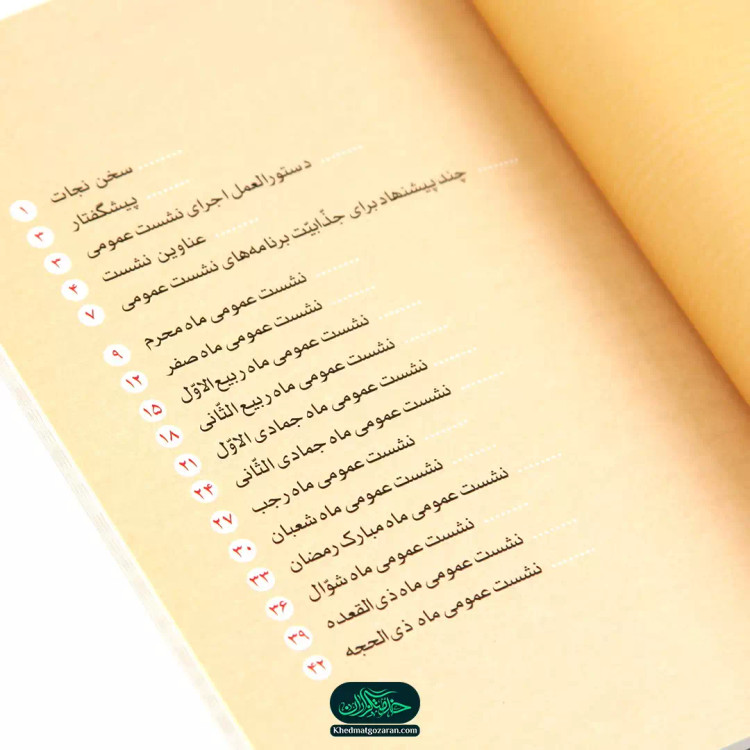 سخن نجات ........ ۱
پیشگفتار ........ ۲
دستورالعمل اجرای نشست عمومی ........ ۳
عناوین نشست ........ ۴
چند پیشنهاد برای جذّابیّت برنامه‌های نشست عمومی ........ ۷
نشست عمومی ماه محرم ........ ۹
نشست عمومی ماه صفر ........ ۱۲
نشست عمومی ماه ربیع الاوّل ........ ۱۵
نشست عمومی ماه ربیع الثّانی ........ ۱۸
نشست عمومی ماه جمادی الاوّل ........ ۲۱
نشست عمومی ماه جمادی الثّانی ........ ۲۴
نشست عمومی ماه رجب ........ ۲۷
نشست عمومی ماه شعبان ........ ۳۰
نشست عمومی ماه مبارک رمضان ........ ۳۳
نشست عمومی ماه شوّال ........ ۳۶
نشست عمومی ماه ذی‌القعده ........ ۳۹
نشست عمومی ماه ذی‌الحجه ........ ۴۲
خدمتگزاران
Khedmatgozaran.com